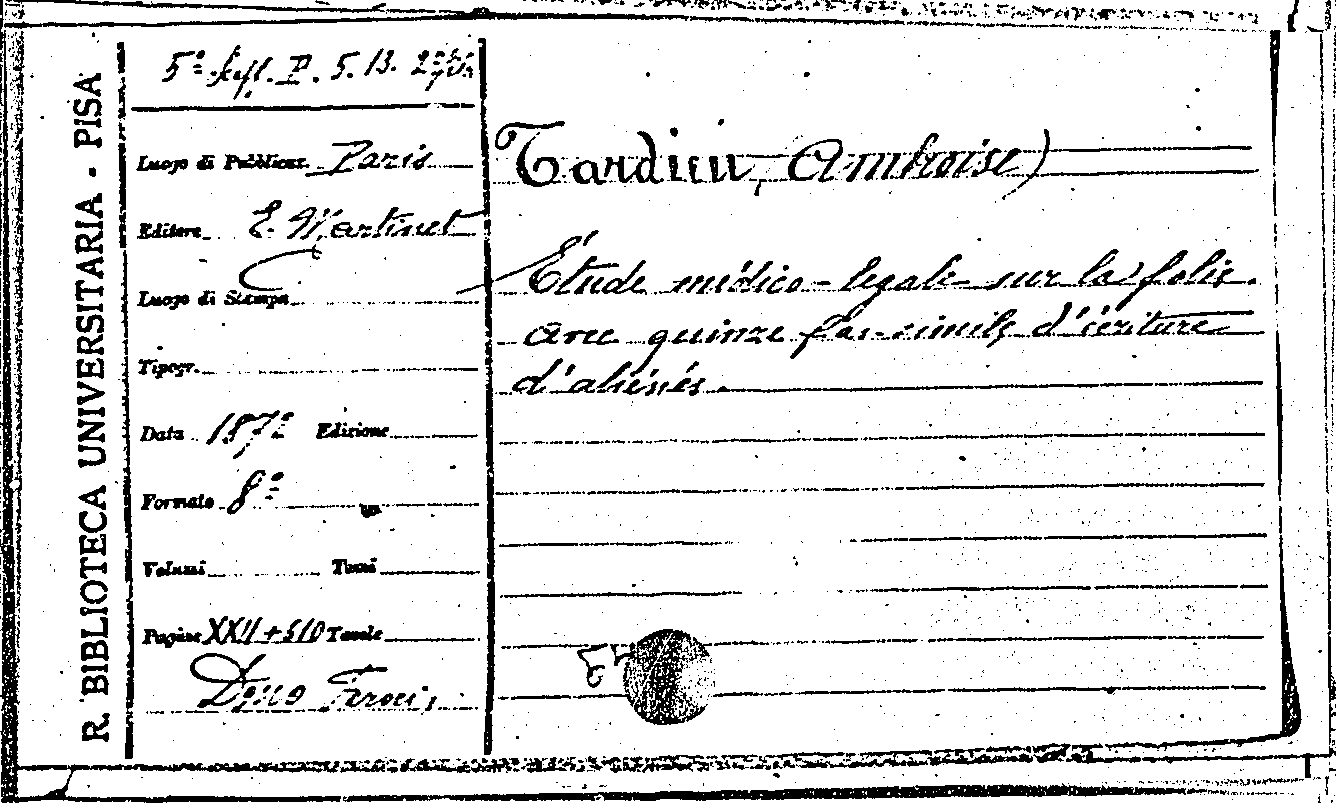 R. BIBLIOTECA UNIVERSITARIA - PISA
P. 5. 13.
Luogo di Pubblicaz. Paris
Editore E. Martinet
Luogo di Stampa
Tipogr.
Data 1872 Edizione
Formato 8º
Volumi Tomi
Pagine XXII+610 Tavole
Dono
Tardieu, Ambroise)
Étude médico-légale sur la folie.
Avec quinze fac-similés d'écriture
d'aliénés.